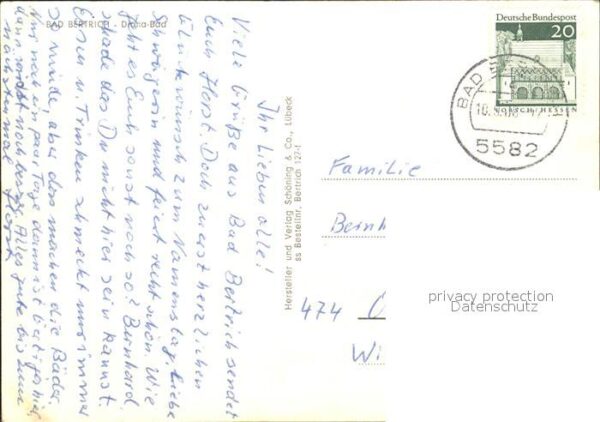 BAD BERTRICH - Diana-Bad
Ihr Lieben alle!
Viele Grüße aus Bad Bertrich sendet
Euch Horst. Doch zuerst herzlichen
Glückwunsch zum Namenstag, Liebe
Schwägerin und feiert recht schön. Wie
geht es Euch sonst noch so? Bernhard
schade das Du nicht hier sein kannst.
Essen u. Trinken schmeckt mir immer
so müde aber das machen die Bäder.
Nur noch ein paar Tage dann ist
dann wird noch besser. Alles gute bis zum
nächsten mal Horst
Hersteller und Verlag Schöning & Co., Lübeck
ss Bestellnr. Bertrich 127-f
Deutsche Bundespost
20
LORSCH/HESSEN
BAD
10.
5582
Familie
Bernh
474
Wi
privacy protection
Datenschutz